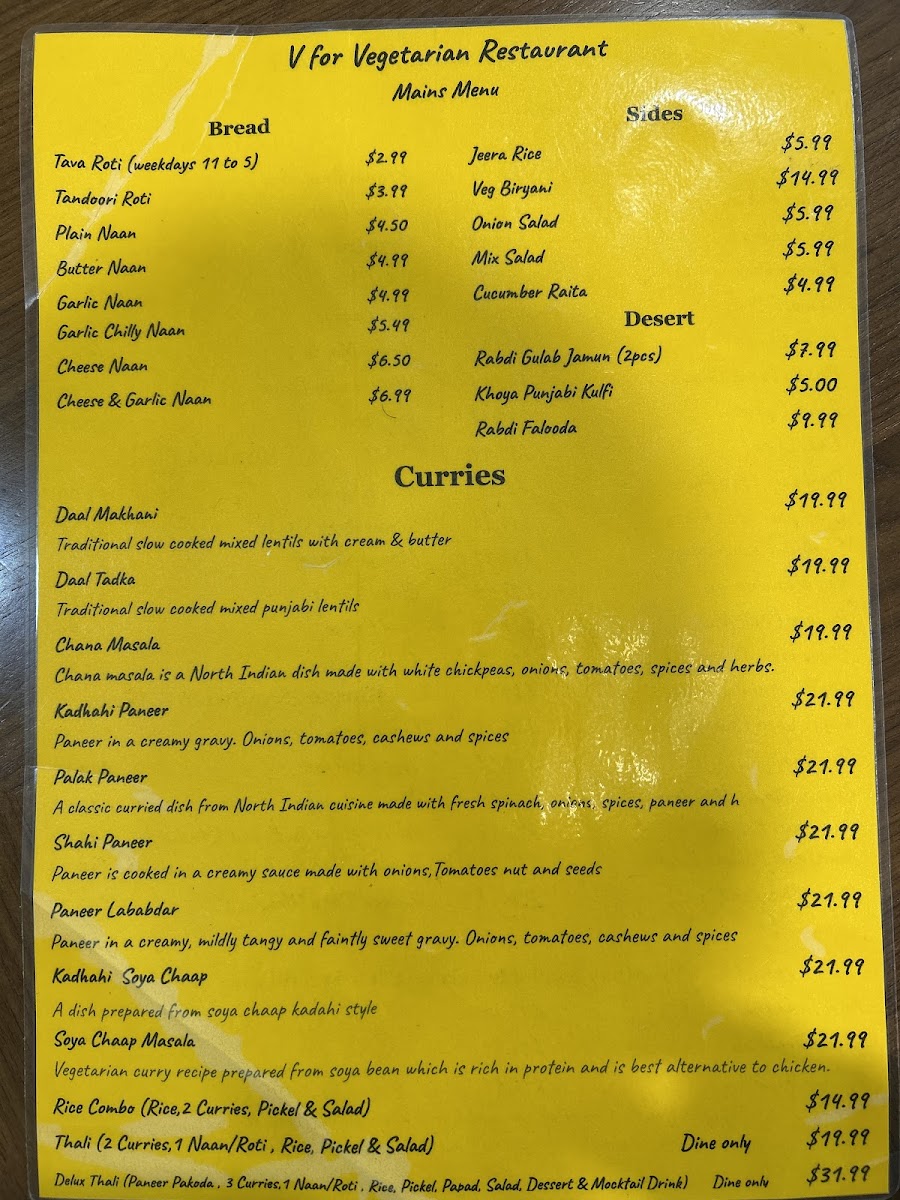 V for Vegetarian Restaurant
Mains Menu
Bread
Tava Roti (weekdays 11 to 5) $2.99
Tandoori Roti $3.99
Plain Naan $4.50
Butter Naan $4.99
Garlic Naan $4.99
Garlic Chilly Naan $5.49
Cheese Naan $6.50
Cheese & Garlic Naan $6.99
Sides
Jeera Rice $5.99
Veg Biryani $14.99
Onion Salad $5.99
Mix Salad $5.99
Cucumber Raita $4.99
Desert
Rabdi Gulab Jamun (2pcs) $7.99
Khoya Punjabi Kulfi $5.00
Rabdi Falooda $9.99
Curries
Daal Makhani $19.99
Traditional slow cooked mixed lentils with cream & butter
Daal Tadka $19.99
Traditional slow cooked mixed punjabi lentils
Chana Masala $19.99
Chana masala is a North Indian dish made with white chickpeas, onions, tomatoes, spices and herbs.
Kadhahi Paneer $21.99
Paneer in a creamy gravy. Onions, tomatoes, cashews and spices
Palak Paneer $21.99
A classic curried dish from North Indian cuisine made with fresh spinach, onions, spices, paneer and h
Shahi Paneer $21.99
Paneer is cooked in a creamy sauce made with onions,Tomatoes nut and seeds
Paneer Lababdar $21.99
Paneer in a creamy, mildly tangy and faintly sweet gravy. Onions, tomatoes, cashews and spices
Kadhahi Soya Chaap $21.99
A dish prepared from soya chaap kadahi style
Soya Chaap Masala $21.99
Vegetarian curry recipe prepared from soya bean which is rich in protein and is best alternative to chicken.
Rice Combo (Rice,2 Curries, Pickel & Salad) $14.99
Thali (2 Curries,1 Naan/Roti , Rice, Pickel & Salad) Dine only $19.99
Delux Thali (Paneer Pakoda , 3 Curries,1 Naan/Roti , Rice, Pickel, Papad, Salad, Dessert & Mocktail Drink) Dine only $31.99